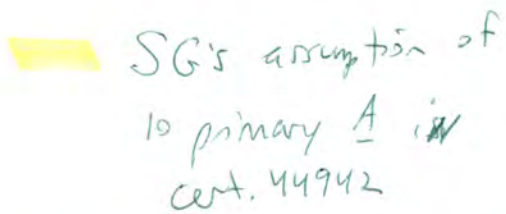 SG's assumption of
10 primary A in
cert. 44942